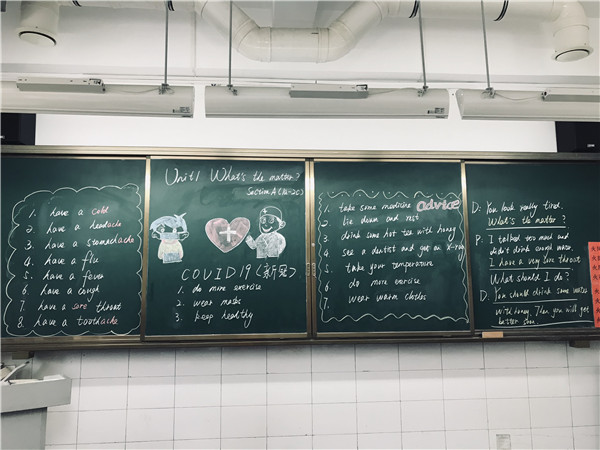 1. have a cold
2. have a headache
3. have a stomachache
4. have a flu
5. have a fever
6. have a cough
7. have a sore throat
8. have a toothache
Unit1 What's the matter?
Section A (1a-2c)
COVID19(新冠)
1. do more exercise
2. wear masks
3. keep healthy
advice
1. take some medicine
2. lie down and rest
3. drink some hot tea with honey
4. see a dentist and get an X-ray
5. take your temperature
6. do more exercise
7. wear warm clothes
D: You look really tired.
What's the matter?
P: I talked too much and
didn't drink enough water.
I have a very sore throat
What should I do?
D: You should drink some water
with honey. Then you will get
better soon.